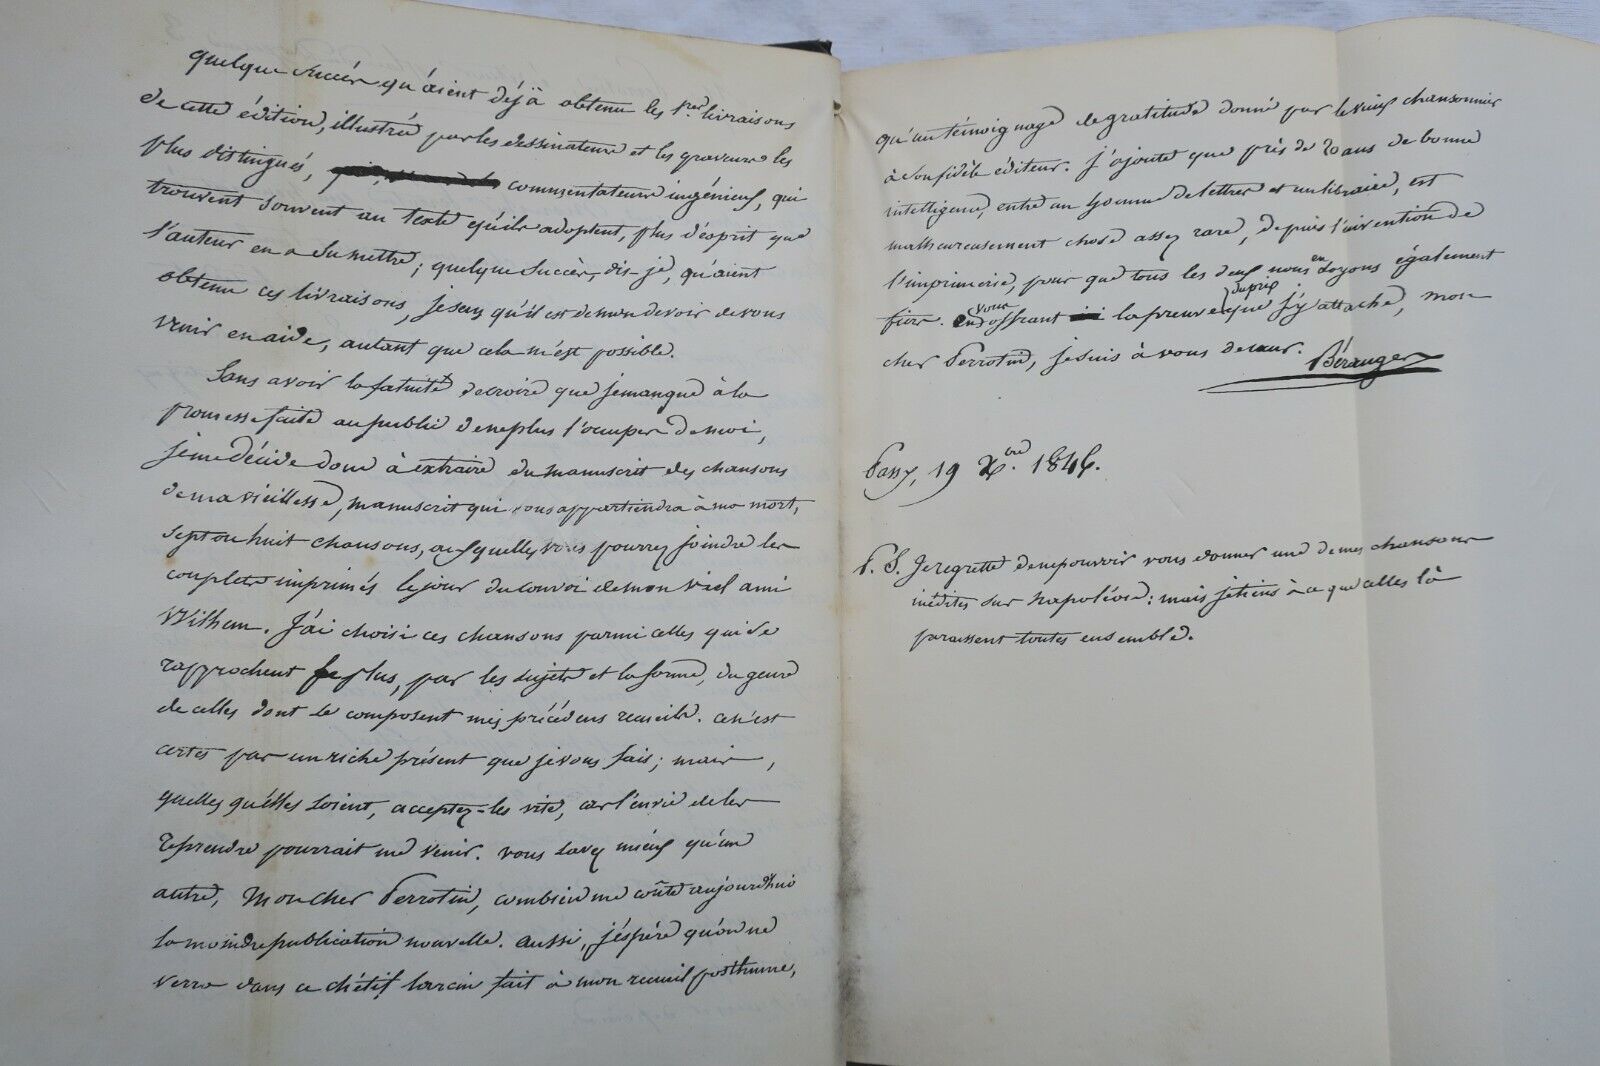 quelque succès qu'aient déjà obtenu les 1res livraisons
de cette édition, illustrée par les dessinateurs et les graveurs les
plus distingués, commentateurs ingénieux, qui
trouvent souvent au texte qu'ils adoptent, plus d'esprit que
l'auteur en a su mettre; quelque succès, dis-je, qu'aient
obtenu ces livraisons, je sens qu'il est de mon devoir de vous
venir en aide, autant que cela m'est possible.
Sans avoir la fatuité de croire que je manque à la
promesse faite au public de ne plus l'occuper de moi,
je me décide donc à extraire du manuscrit des chansons
de ma vieillesse, manuscrit qui vous appartiendra à ma mort,
sept ou huit chansons, auxquelles vous pourrez joindre les
couplets imprimés le jour du convoi de mon vieil ami
Wilhem. J'ai choisi ces chansons parmi celles qui se
rapprochent le plus, par les sujets et la forme, du genre
de celles dont se composent mes précédens recueils. Ce n'est
certes pas un riche présent que je vous fais; mais,
quelles qu'elles soient, acceptez-les vite, car l'envie de les
reprendre pourrait me venir. Vous savez mieux qu'un
autre, mon cher Perrotin, combien me coûte aujourd'hui
la moindre publication nouvelle. Aussi, j'espère qu'on ne
verra dans ce chétif larcin fait à mon recueil posthume,
qu'un témoignage de gratitude donné par le vieux chansonnier
à son fidèle éditeur. J'ajoute que près de 20 ans de bonne
intelligence, entre un homme de lettres et un libraire, est
malheureusement chose assez rare, depuis l'invention de
l'imprimerie, pour que tous les deux nous en soyons également
fiers. En vous offrant la preuve du prix que j'y attache, mon
cher Perrotin, je suis à vous de cœur. Béranger
Passy, 19 Xbre. 1846.
P. S. Je regrette de ne pouvoir vous donner une de mes chansons
inédites sur Napoléon: mais je tiens à ce que celles là
paraissent toutes ensemble.